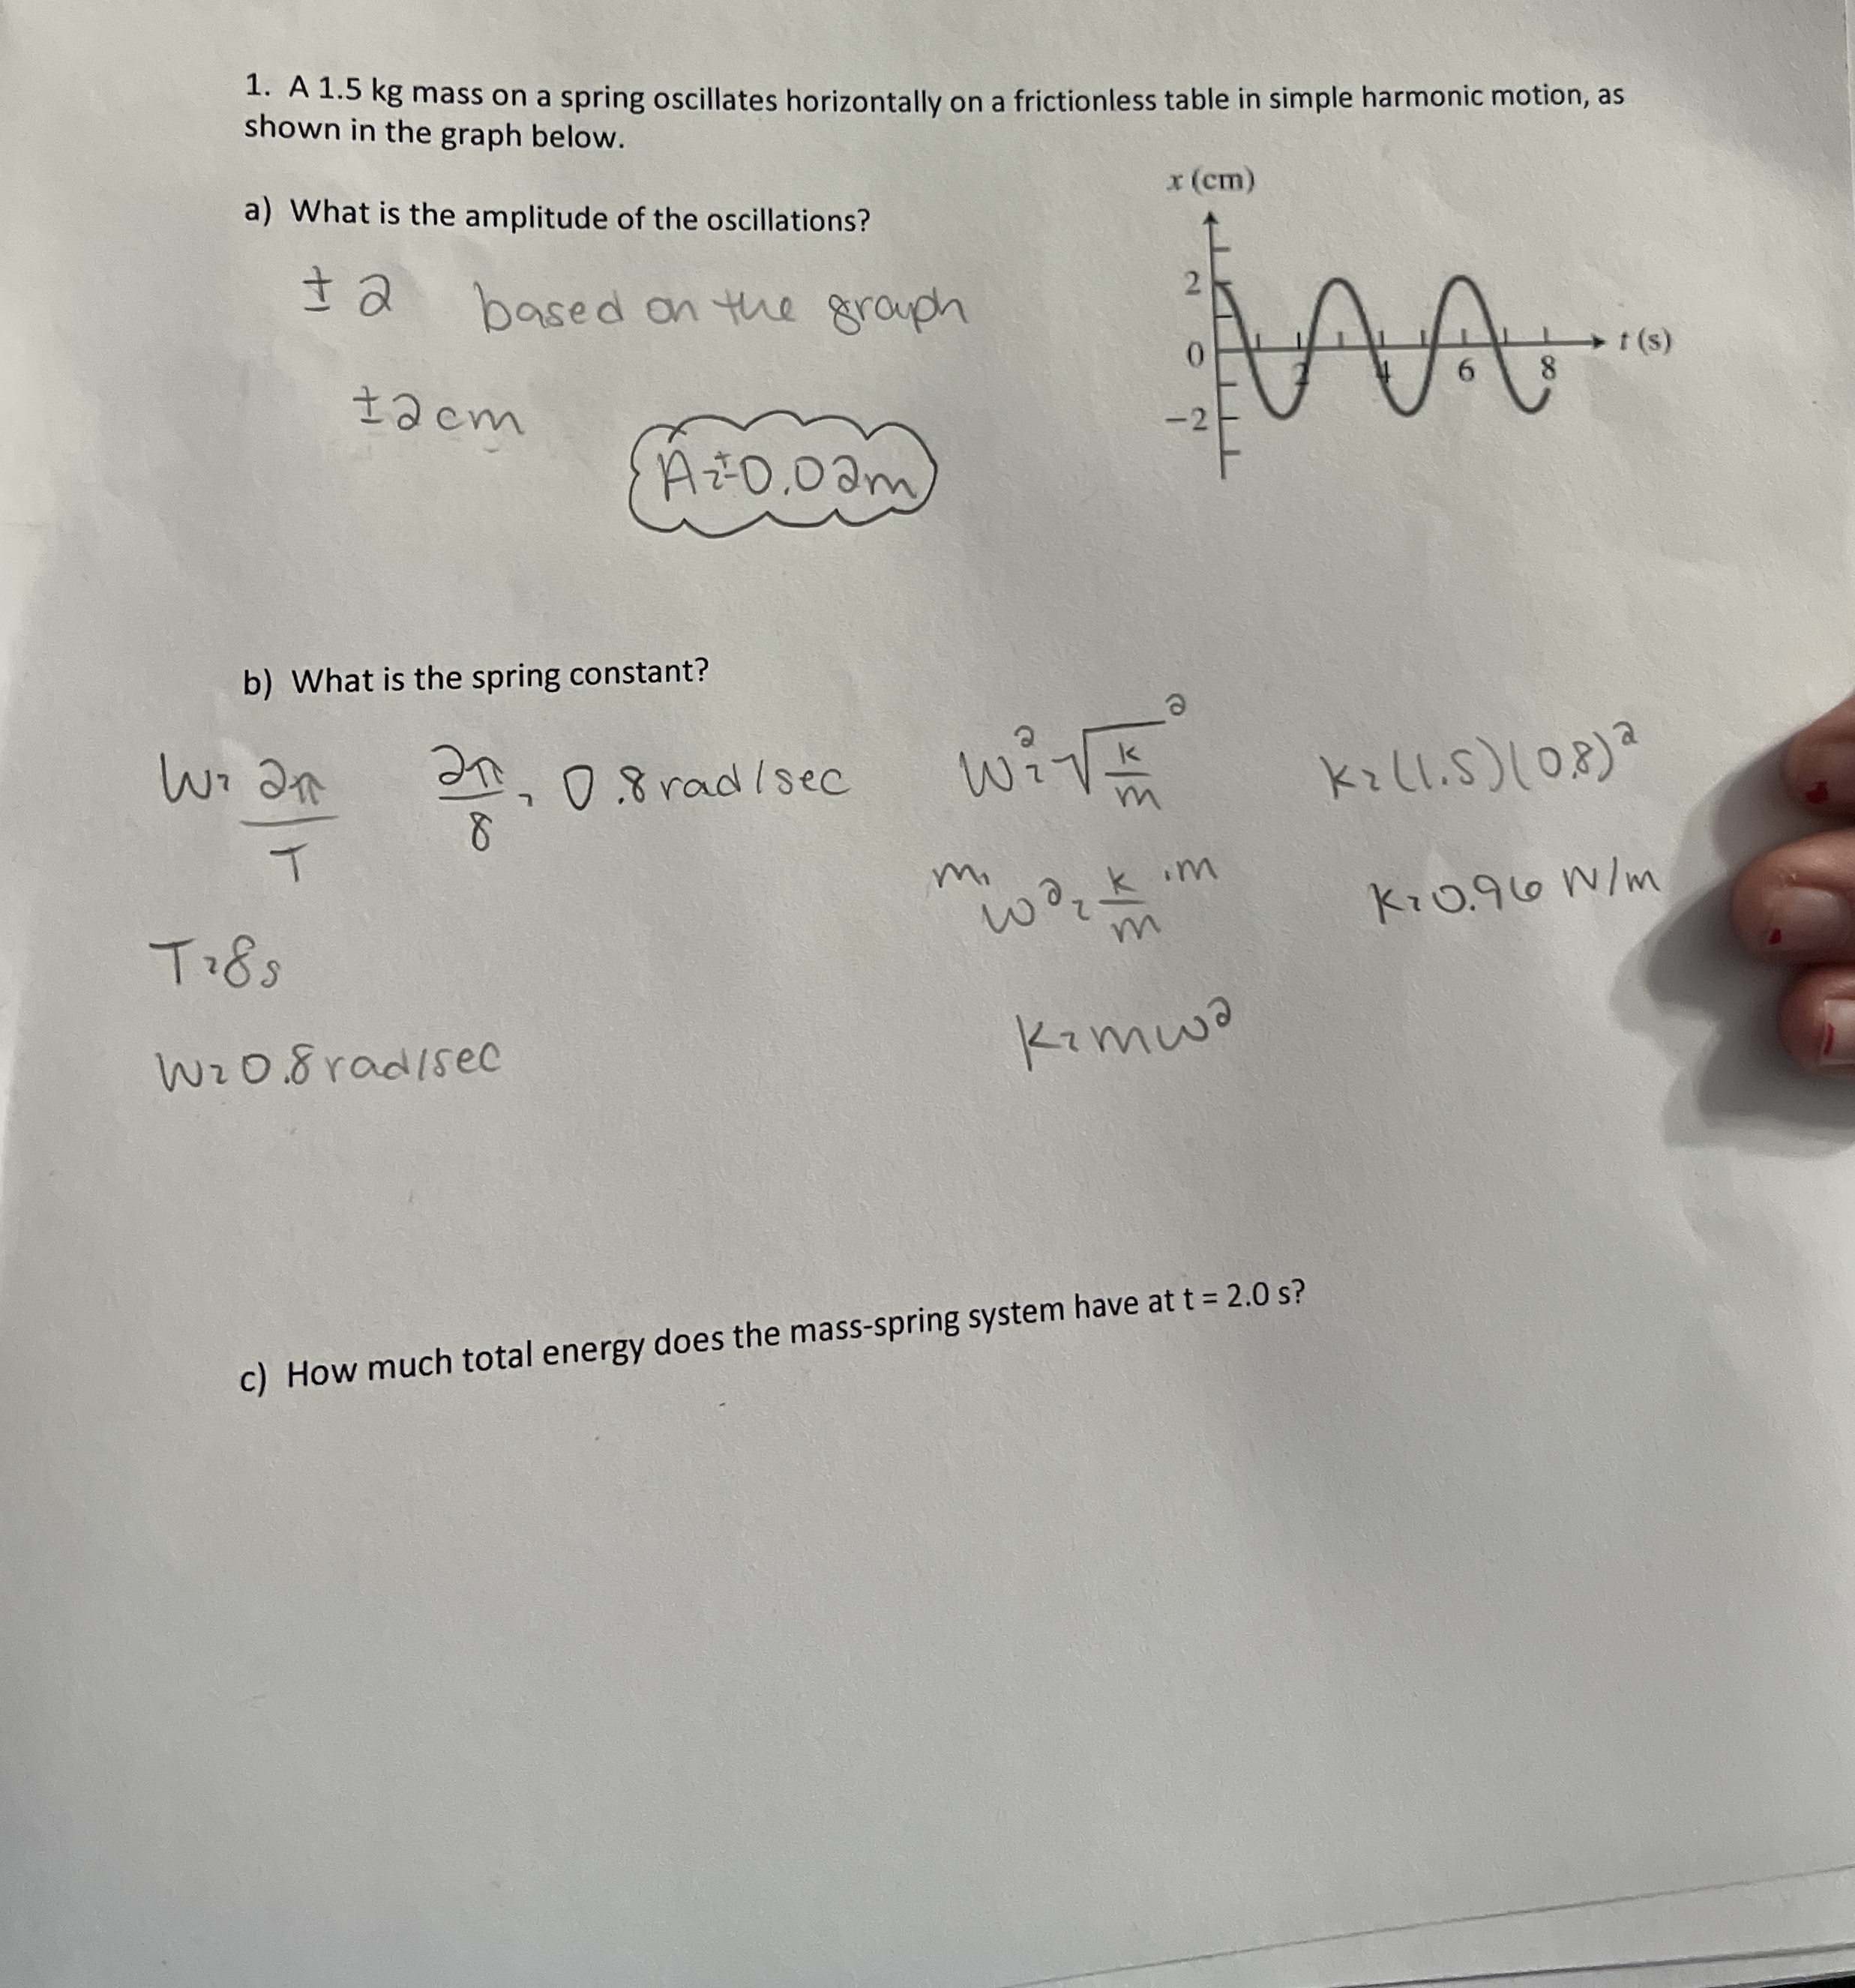 1. A 1.5 kg mass on a spring oscillates horizontally on a frictionless table in simple harmonic motion, as
shown in the graph below.
a) What is the amplitude of the oscillations?
± 2 based on the graph
±2cm
A=±0.02m
x (cm)
2
0
-2
2
4
6
8
t (s)
b) What is the spring constant?
W= 2π/T
2π/8 = 0.8 rad/sec
T=8s
W=0.8 rad/sec
W²=√(k/m)²
m·w²=k/m·m
K=mw²
K=(1.5)(0.8)²
K=0.96 N/m
c) How much total energy does the mass-spring system have at t = 2.0 s?